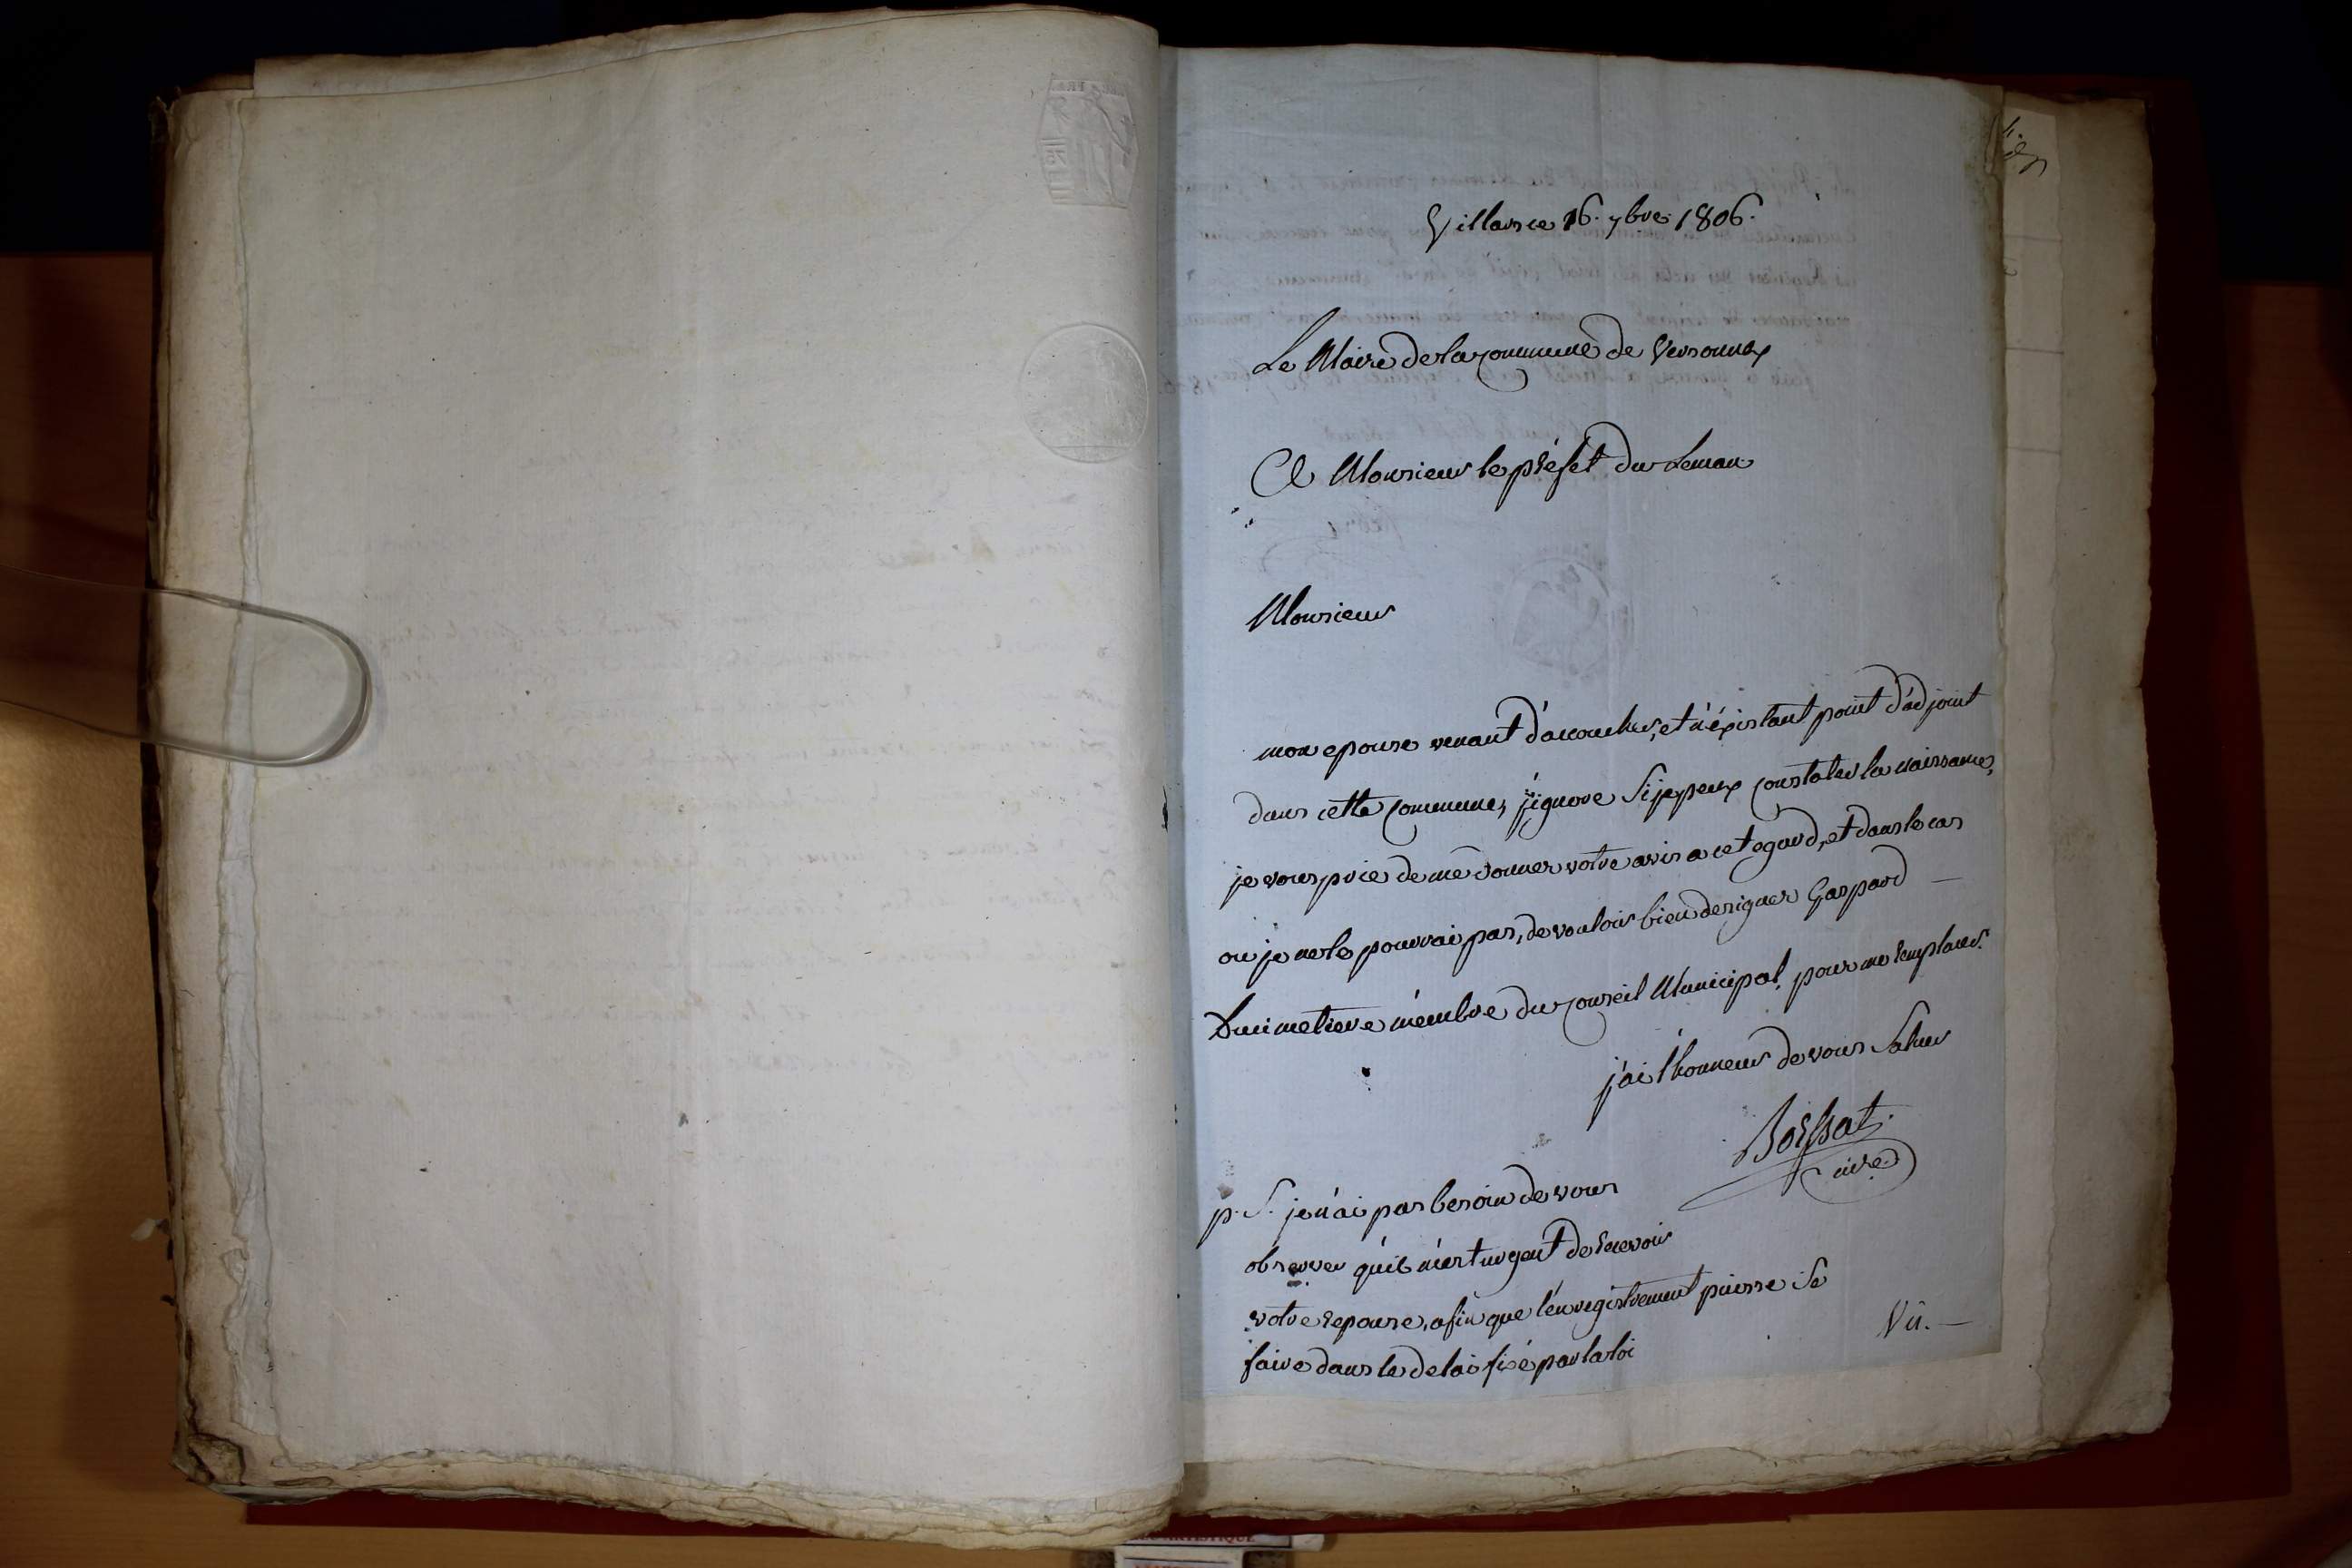 Villars ce 16. 7bre 1806.
Le Maire de la commune de Versonnex
A Monsieur le préfet du Leman
Monsieur
mon epouse venant d'accoucher, et n'éxistant point d'adjoint
dans cette commune, j'ignore Si je peux constater la naissance,
je vous prie de me donner votre avis a cet egard, et dans le cas
ou je ne le pourrai pas, de vouloir bien designer Gaspard
Duimetiere mémbre du conseil Municipal, pour me remplacer.
j'ai l'honneur de vous Saluer
Boissat.
p. S. je n'ai pas besoin de vous
observer qu'il m'est urgent de recevoir
votre reponse, afin que l'enregistrement puisse Se
faire dans le delai fixé par la loi
Vû.